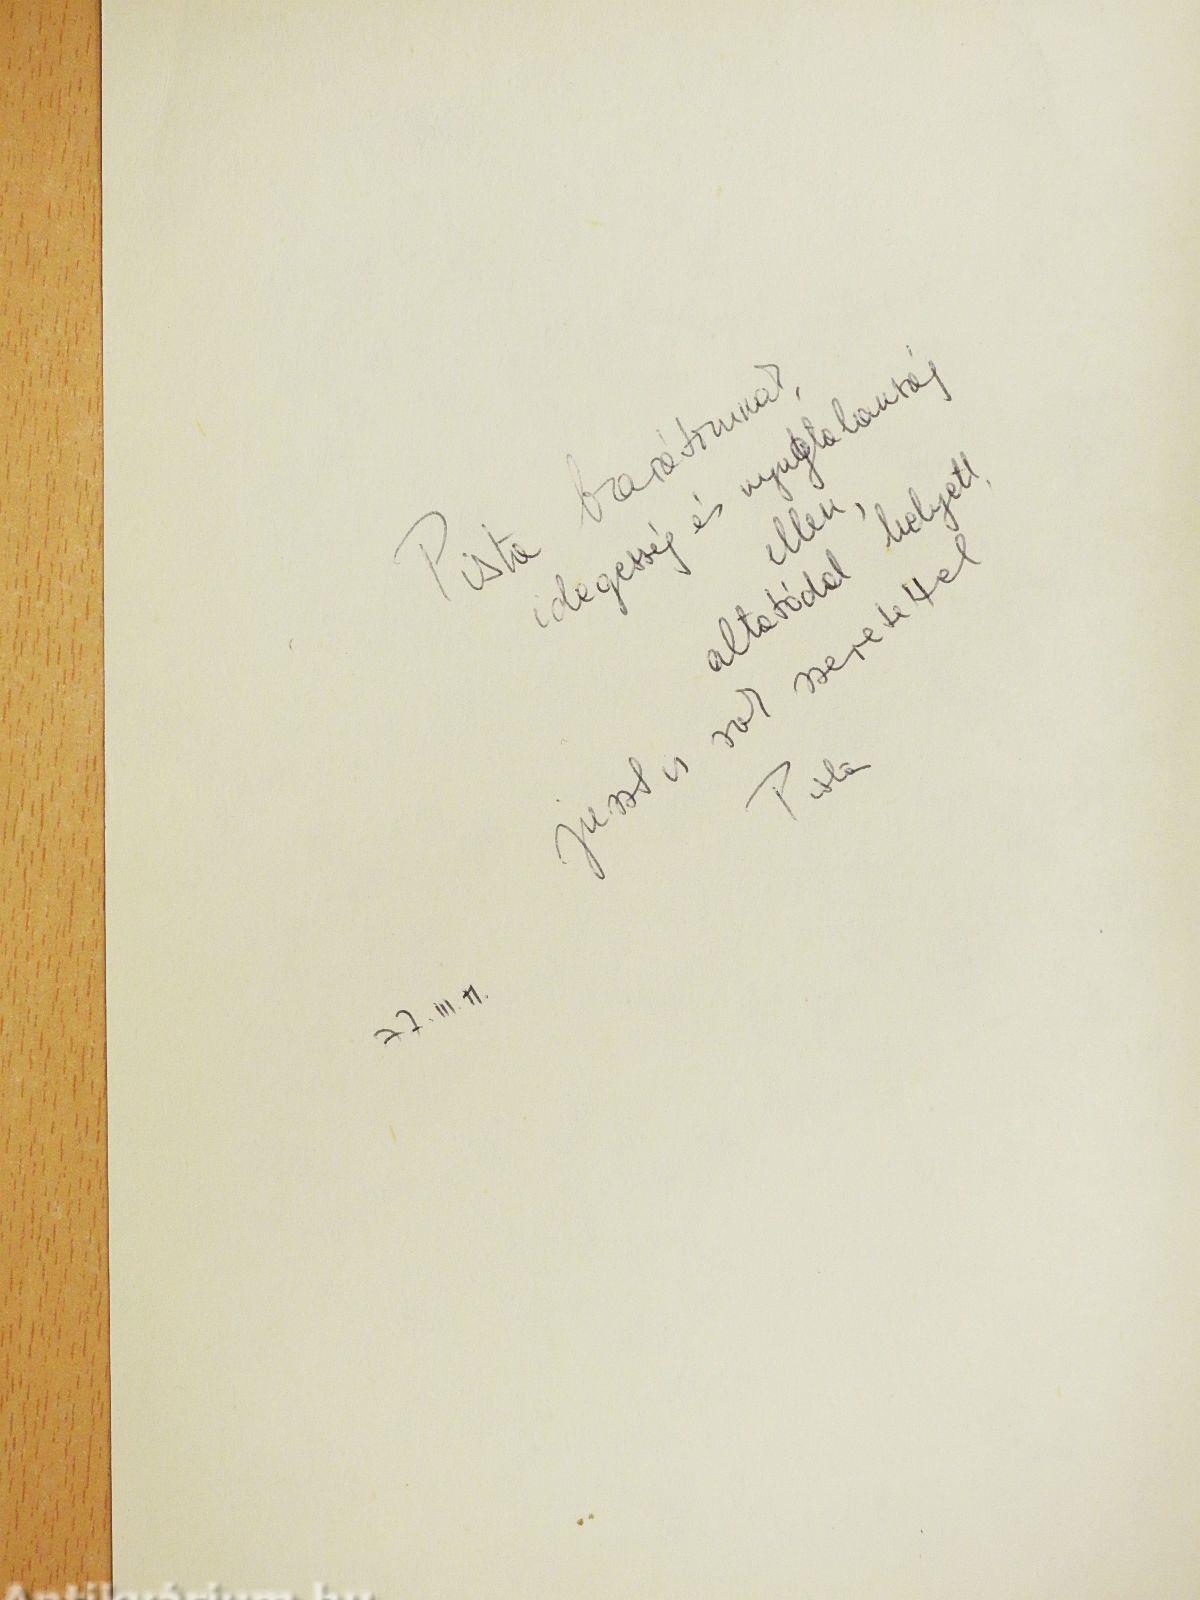 Pista barátomnak,
idegesség és nyugtalanság
ellen,
altatódal helyett,
juszt is sok szeretettel
Pista
77. III. 11.
Antikvárium.hu